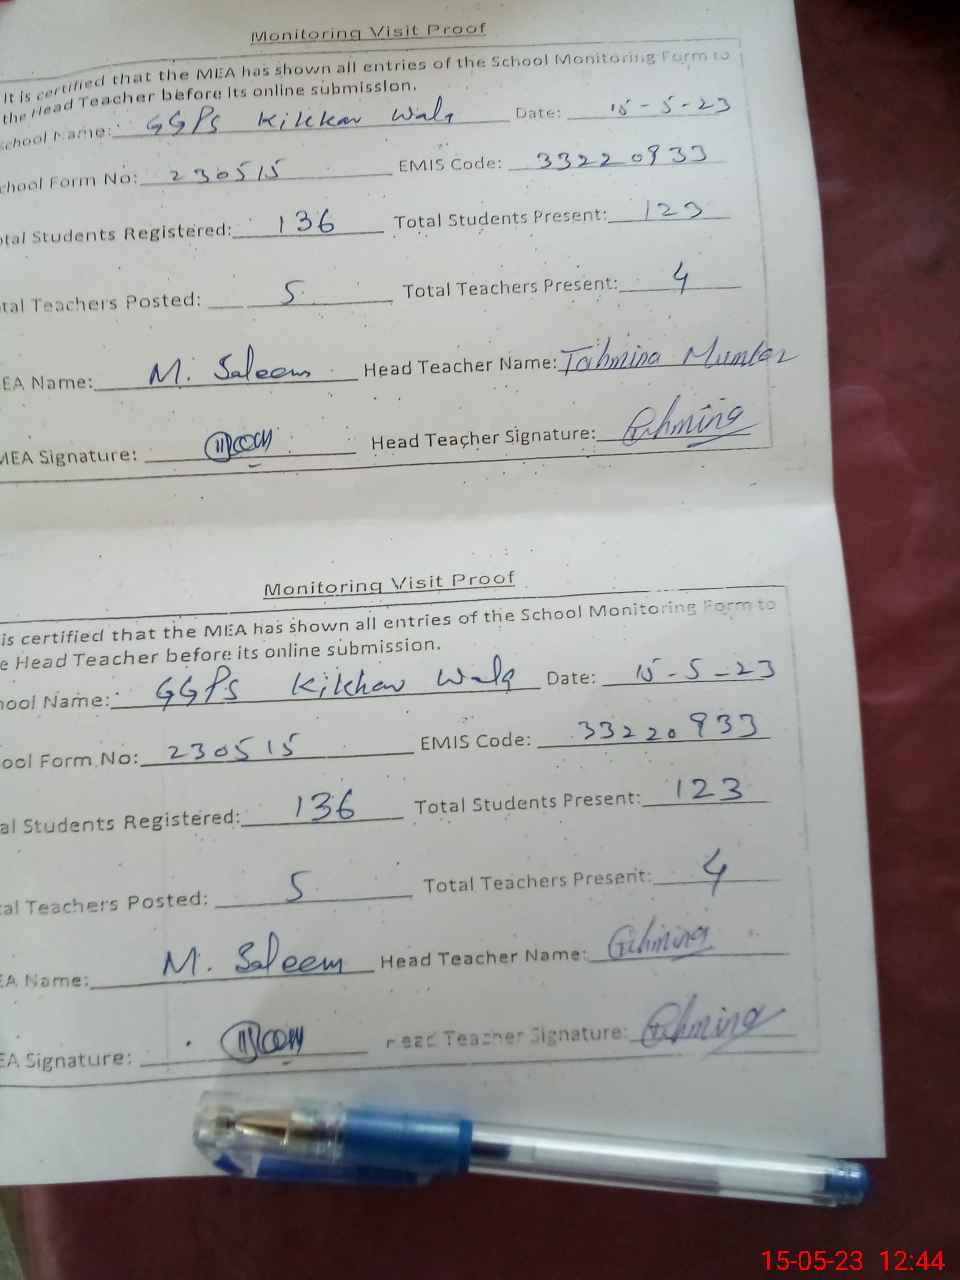 Monitoring Visit Proof
It is certified that the MEA has shown all entries of the School Monitoring Form to
the Head Teacher before its online submission.
chool Name: GGPS Kikkar Wala Date: 15-5-23
chool Form No: 230515 EMIS Code: 33220933
otal Students Registered: 136 Total Students Present: 123
tal Teachers Posted: 5 Total Teachers Present: 4
EA Name: M. Saleem Head Teacher Name: Tahmina Mumtaz
MEA Signature: Head Teacher Signature: Tahmina
Monitoring Visit Proof
is certified that the MEA has shown all entries of the School Monitoring Form to
e Head Teacher before its online submission.
hool Name: GGPS Kikkar Wala Date: 15-5-23
ool Form No: 230515 EMIS Code: 33220933
al Students Registered: 136 Total Students Present: 123
tal Teachers Posted: 5 Total Teachers Present: 4
EA Name: M. Saleem Head Teacher Name: Tahmina
EA Signature: Head Teacher Signature: Tahmina
15-05-23 12:44